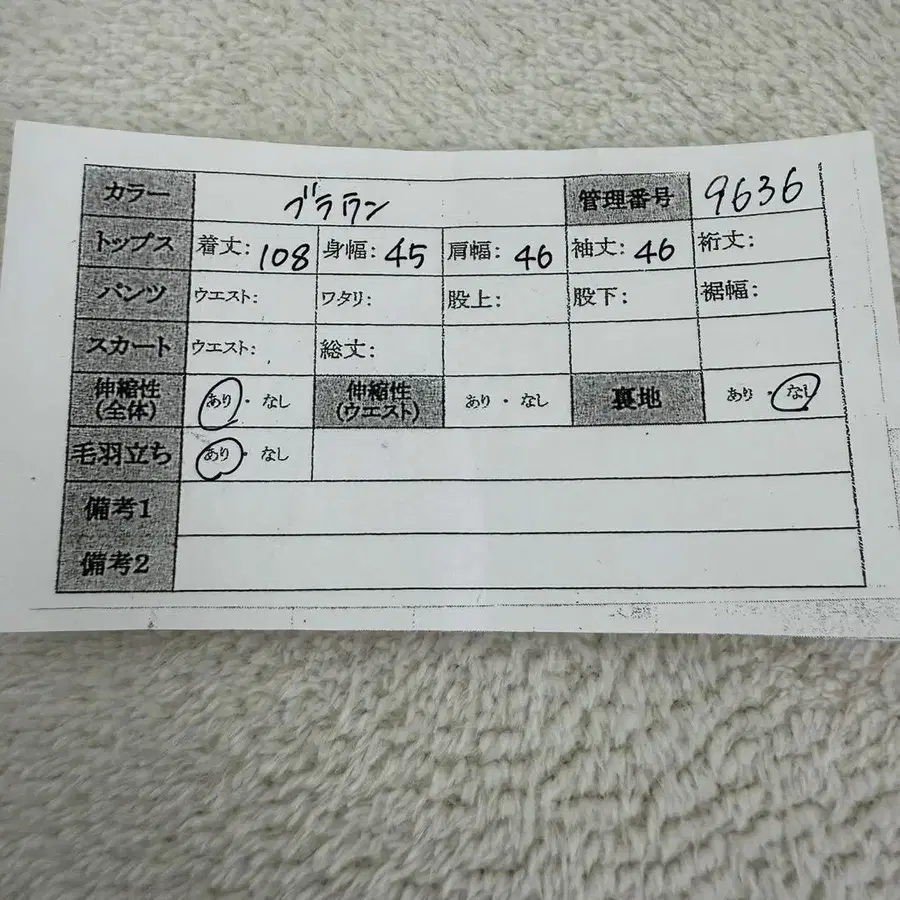 カラー ブラウン 管理番号 9636
トップス 着丈: 108 身幅: 45 肩幅: 46 袖丈: 46 裄丈:
パンツ ウエスト: ワタリ: 股上: 股下: 裾幅:
スカート ウエスト: 総丈:
伸縮性 あり・なし 伸縮性 あり・なし 裏地 あり・なし
(全体) (ウエスト)
毛羽立ち あり・なし
備考1
備考2